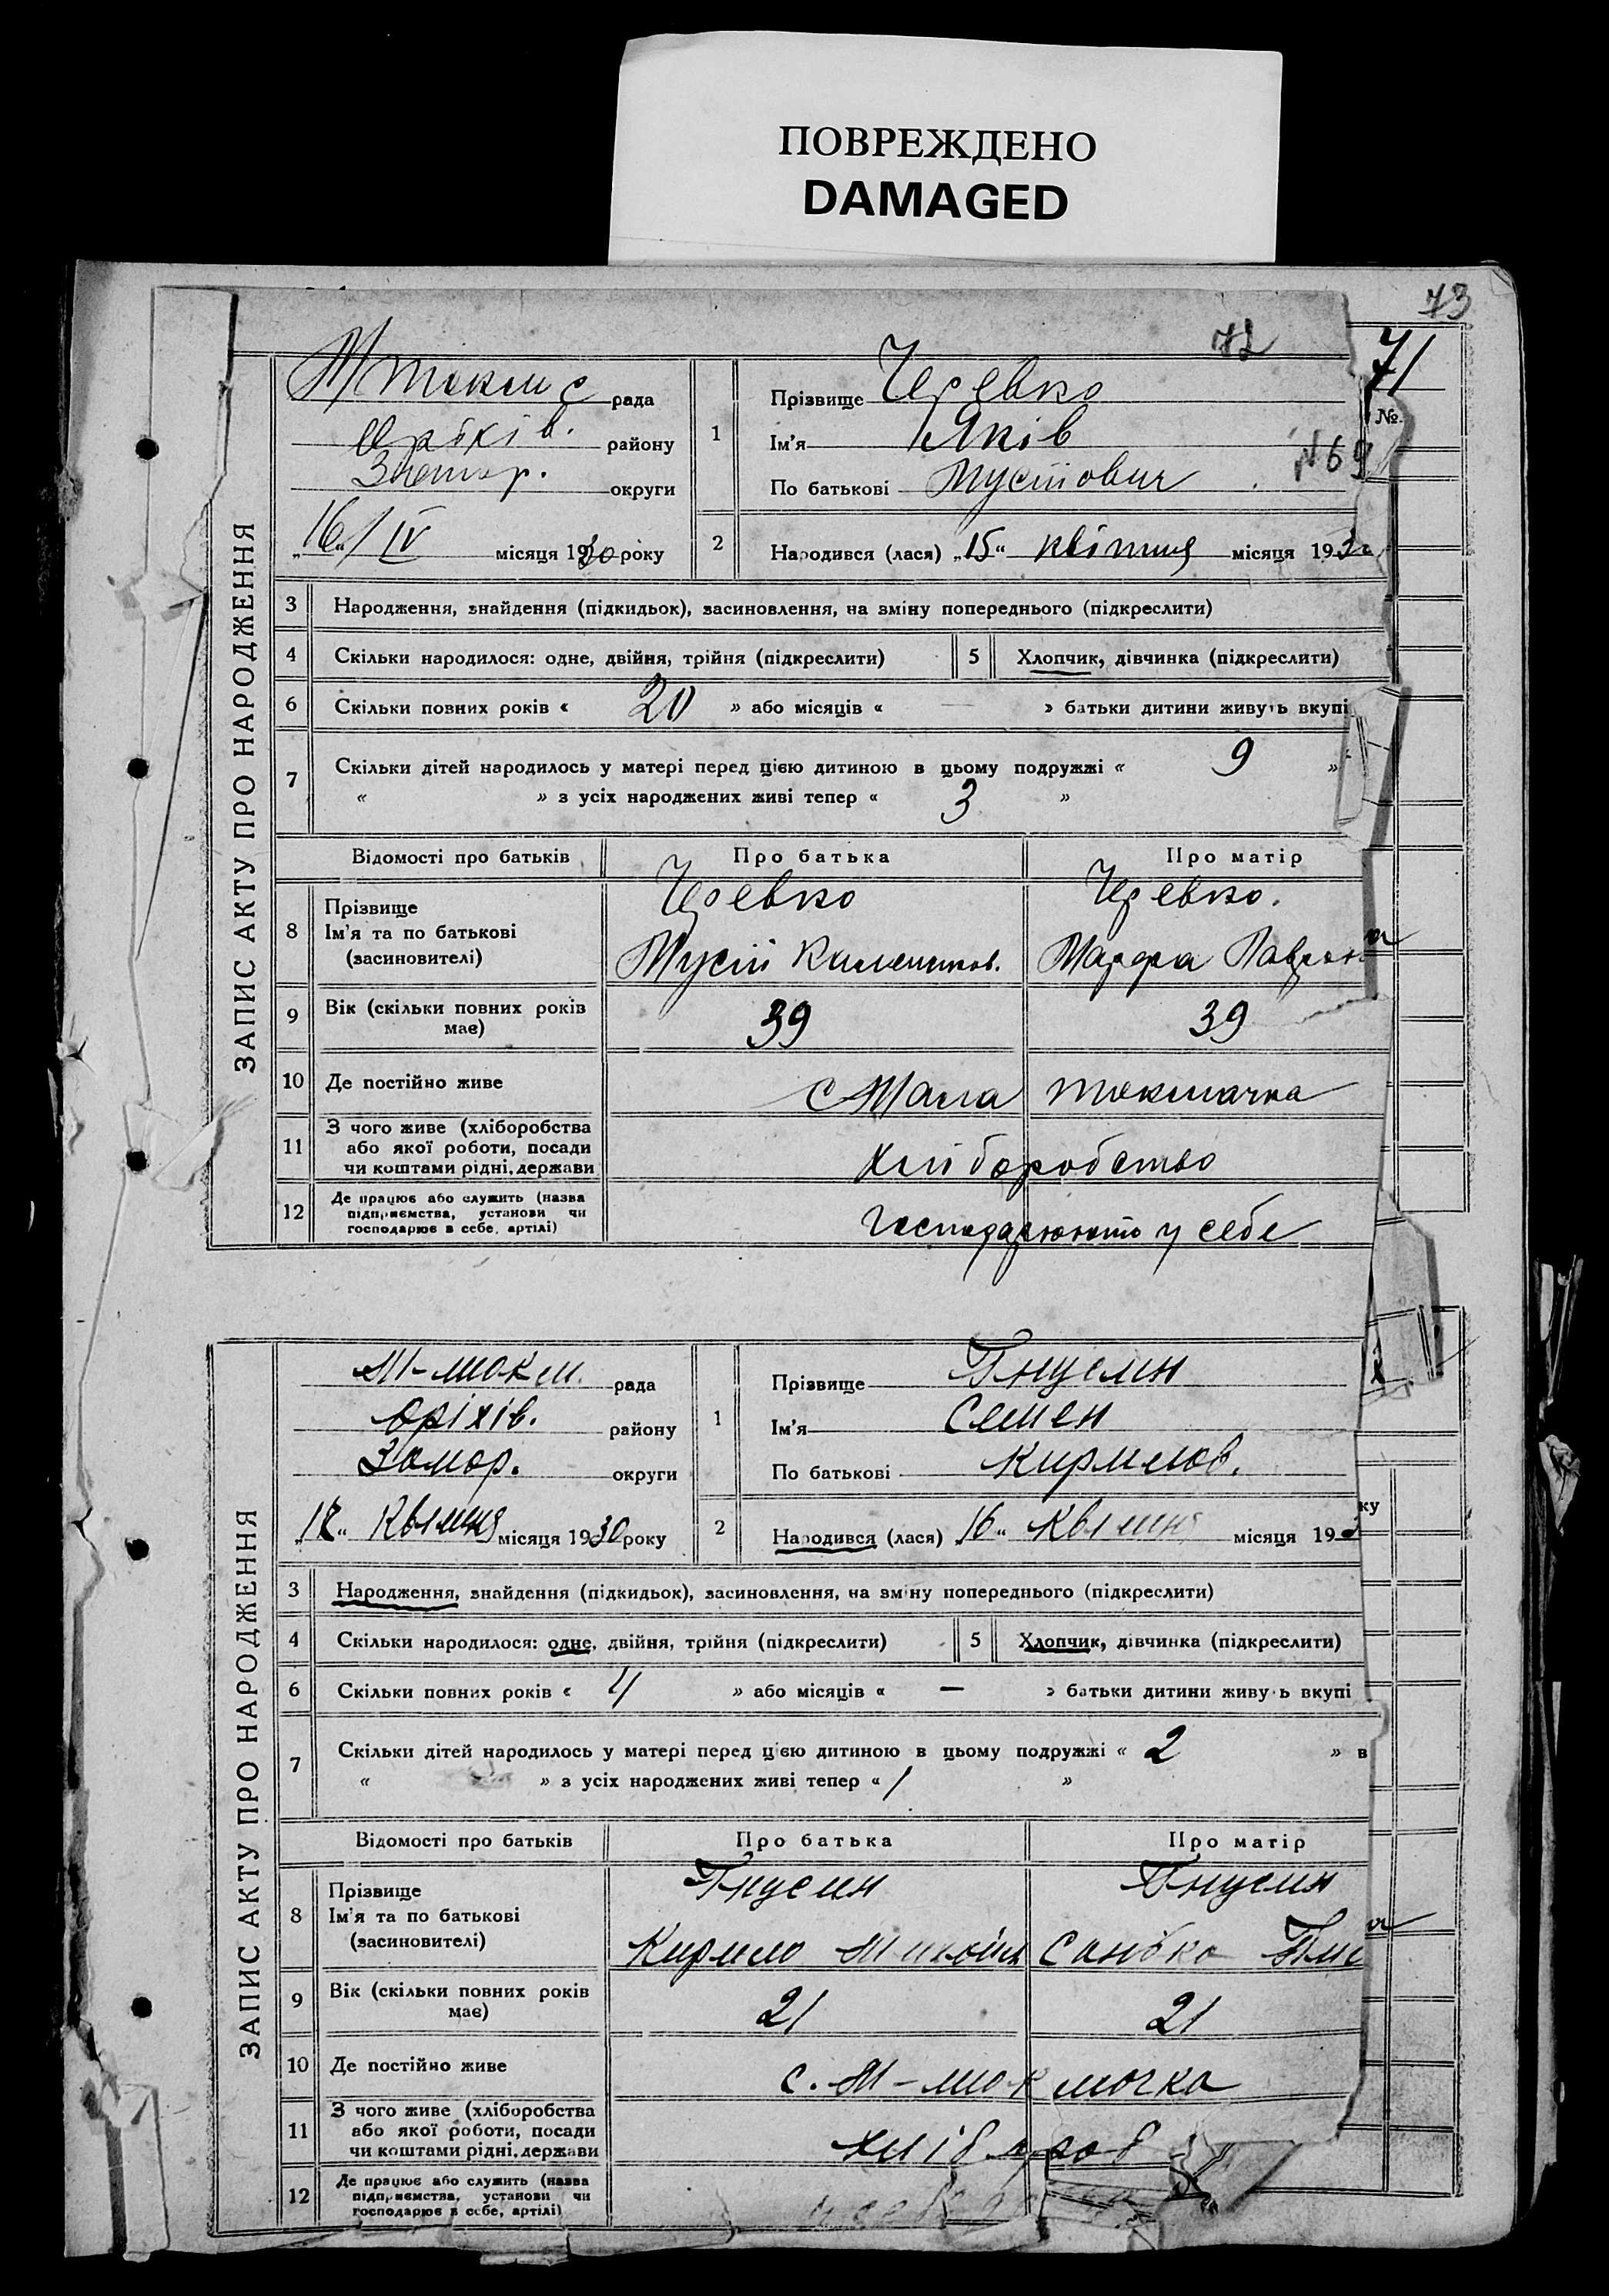 ПОВРЕЖДЕНО
DAMAGED
73
72
71
№
№ 69
ЗАПИС АКТУ ПРО НАРОДЖЕННЯ
М Токм с рада
району
округи
„16“/IV місяця 1930 року
1 Прізвище Черевко
Ім'я Яків
По батькові Мусійович
2 Народився (лася) „15“ квітня місяця 193
3 Народження, знайдення (підкидьок), засиновлення, на зміну попереднього (підкреслити)
4 Скільки народилося: одне, двійня, трійня (підкреслити) 5 Хлопчик, дівчинка (підкреслити)
6 Скільки повних років « 20 » або місяців « — » батьки дитини живуть вкупі
7 Скільки дітей народилось у матері перед цією дитиною в цьому подружжі « 9 »
« » з усіх народжених живі тепер « 3 »
Відомості про батьків Про батька Про матір
8 Прізвище Черевко Черевко.
Ім'я та по батькові
(засиновителі) Мусій Марфа
9 Вік (скільки повних років має) 39 39
10 Де постійно живе с Мала Токмачка
11 З чого живе (хліборобства
або якої роботи, посади
чи коштами рідні, держави хліборобство
12 Де працює або служить (назва
підприємства, установи чи
господарює в себе, артілі) Господарюють у себе
ЗАПИС АКТУ ПРО НАРОДЖЕННЯ
М-Токм. рада
Оріхів. району
Запор. округи
„18“ Квітня місяця 1930 року
1 Прізвище
Ім'я Семен
По батькові Кирилов.
2 Народився (лася) „16“ Квітня місяця 193
ку
3 Народження, знайдення (підкидьок), засиновлення, на зміну попереднього (підкреслити)
4 Скільки народилося: одне, двійня, трійня (підкреслити) 5 Хлопчик, дівчинка (підкреслити)
6 Скільки повних років « 4 » або місяців « — » батьки дитини живуть вкупі
7 Скільки дітей народилось у матері перед цією дитиною в цьому подружжі « 2 » в
« » з усіх народжених живі тепер « 1 »
Відомості про батьків Про батька Про матір
8 Прізвище
Ім'я та по батькові
(засиновителі) Кирило
9 Вік (скільки повних років має) 21 21
10 Де постійно живе с. М-Токмачка
11 З чого живе (хліборобства
або якої роботи, посади
чи коштами рідні, держави хлібороб
12 Де працює або служить (назва
підприємства, установи чи
господарює в себе, артілі)